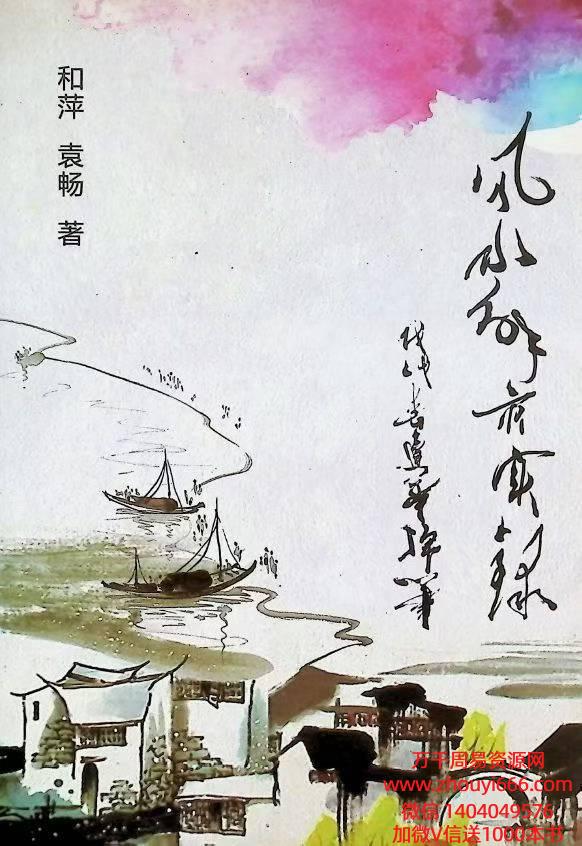 风水解实录
戊戌春
和萍 袁畅 著
万千周易资源网
www.zhouyi666.com
微信 1404049576
加微V信送1000本书